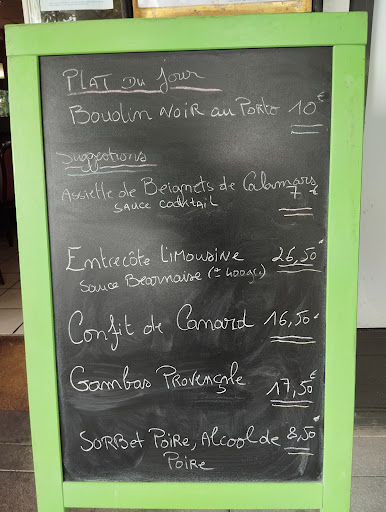 PLAT DU JOUR
Boudin NOIR au Porto 10€
Suggestions
Assiette de Beignets de Calamars
SAUCE COCKTAIL 7€
Entrecôte Limousine 26,50€
Sauce Béarnaise (± 400gr.)
Confit de Canard 16,50€
Gambas Provençale 17,50€
SORBET POIRE, Alcool de 8,50€
POIRE